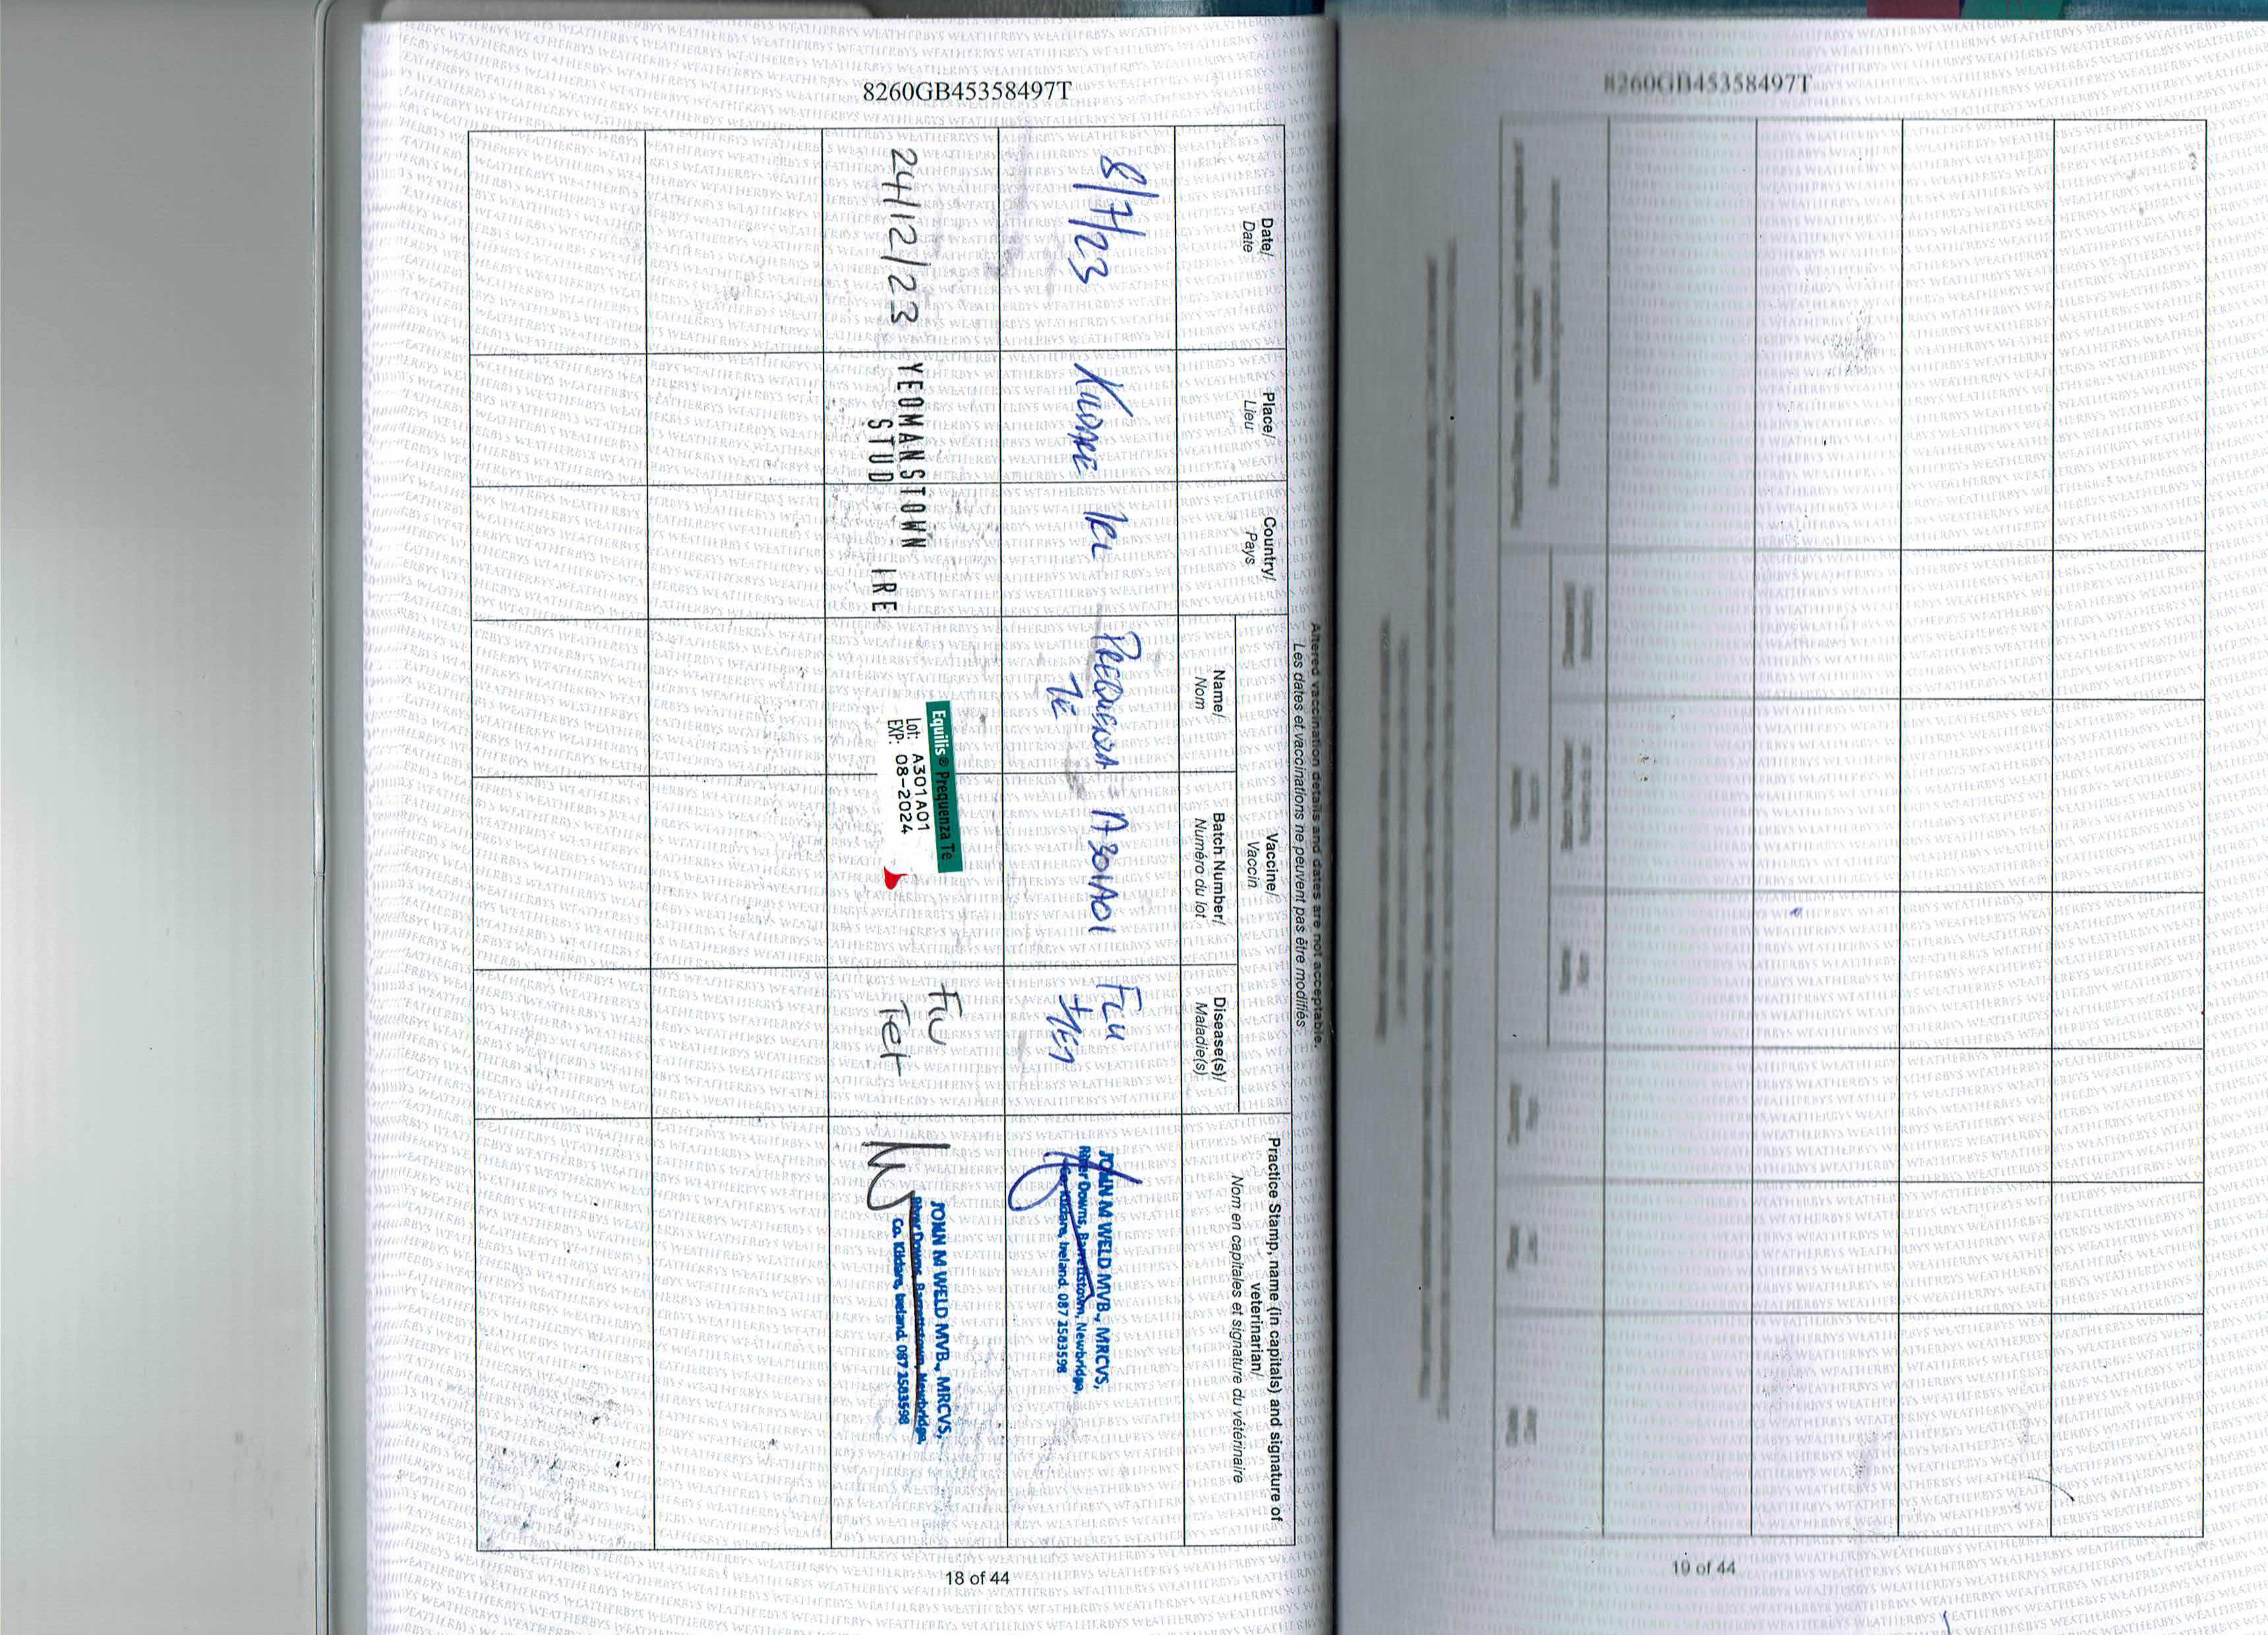 8260GB45358497T
Altered vaccination details and dates are not acceptable.
Les dates et vaccinations ne peuvent pas être modifiés
Date/
Date
Place/
Lieu
Country/
Pays
Vaccine/
Vaccin
Name/
Nom
Batch Number/
Numéro du lot
Disease(s)/
Maladie(s)
Practice Stamp, name (in capitals) and signature of
veterinarian/
Nom en capitales et signature du vétérinaire
8/7/23 KILDARE IRL PREQUENZA A301A01 FLU
TE TET
JOHN M WELD MVB., MRCVS,
River Downs, Barrettstown, Newbridge,
Co. Kildare, Ireland. 087 2583598
24/12/23 YEOMANSTOWN
STUD IRE
Equilis® Prequenza Te
Lot: A301A01
EXP: 08-2024
Flu
Tet
JOHN M WELD MVB., MRCVS,
River Downs, Barrettstown, Newbridge,
Co. Kildare, Ireland. 087 2583598
18 of 44
8260GB45358497T
19 of 44